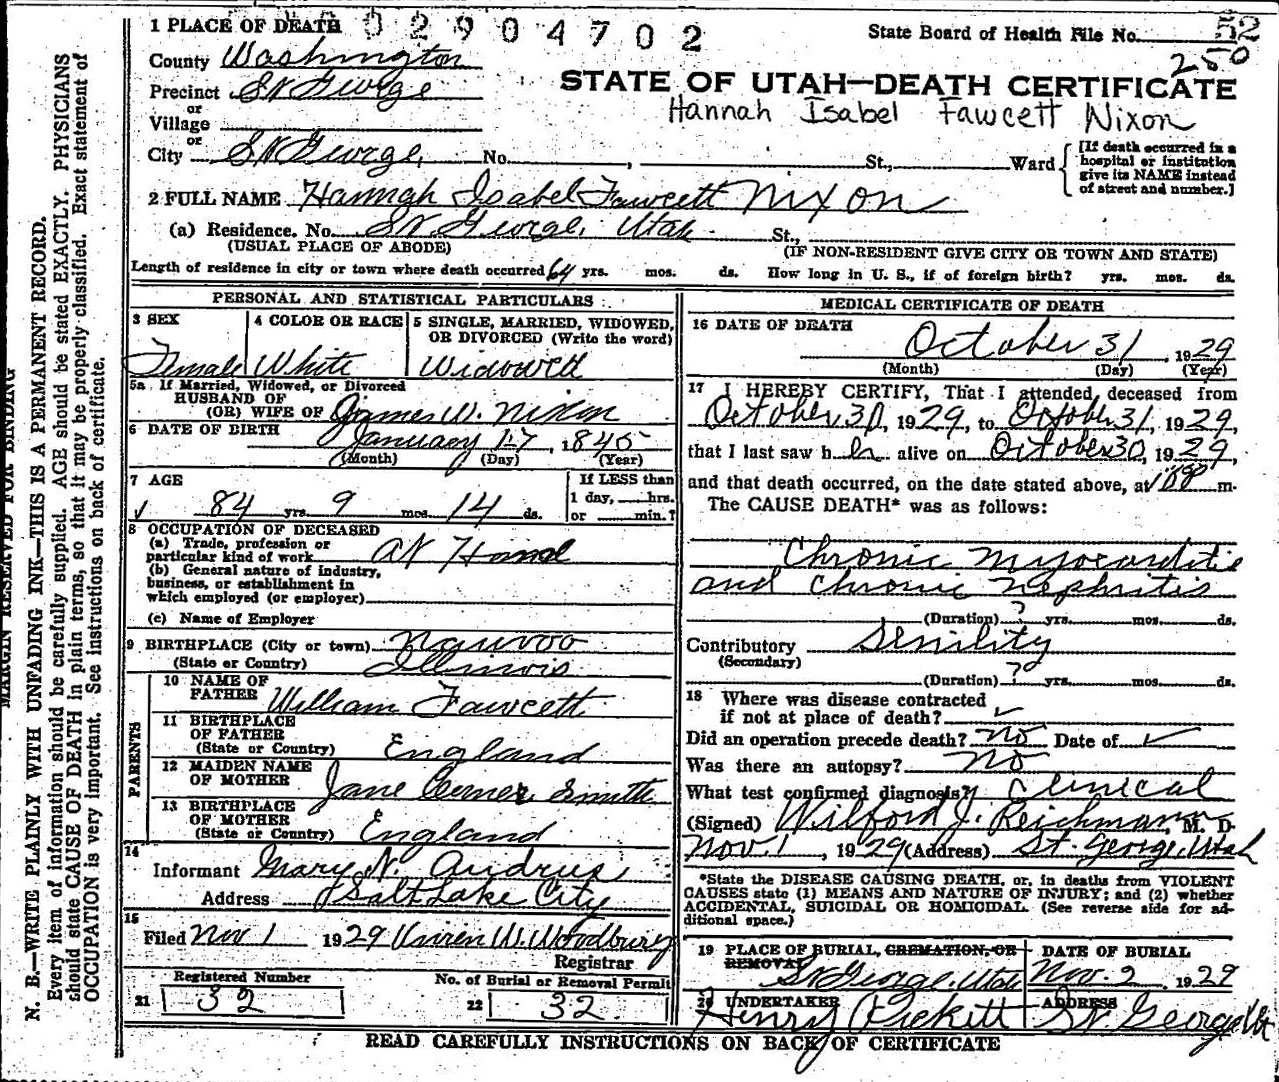 1 PLACE OF DEATH 02904702
State Board of Health File No. 52
250
County Washington
Precinct St George
or
Village
or
City St George, No. , St., Ward
[If death occurred in a hospital or institution give its NAME instead of street and number.]
STATE OF UTAH—DEATH CERTIFICATE
Hannah Isabel Fawcett Nixon
2 FULL NAME Hannah Isabel Fawcett Nixon
(a) Residence. No. St. George, Utah St.,
(USUAL PLACE OF ABODE) (IF NON-RESIDENT GIVE CITY OR TOWN AND STATE)
Length of residence in city or town where death occurred 64 yrs. mos. ds. How long in U. S., if of foreign birth? yrs. mos. ds.
PERSONAL AND STATISTICAL PARTICULARS
3 SEX
Female
4 COLOR OR RACE
White
5 SINGLE, MARRIED, WIDOWED, OR DIVORCED (Write the word)
Widowed
5a If Married, Widowed, or Divorced
HUSBAND OF
(OR) WIFE OF James W. Nixon
6 DATE OF BIRTH January 17, 1845
(Month) (Day) (Year)
7 AGE
84 yrs. 9 mos. 14 ds.
If LESS than
1 day, hrs.
or min.?
8 OCCUPATION OF DECEASED
(a) Trade, profession or
particular kind of work At Home
(b) General nature of industry,
business, or establishment in
which employed (or employer)
(c) Name of Employer
9 BIRTHPLACE (City or town) Nauvoo
(State or Country) Illinois
PARENTS
10 NAME OF
FATHER William Fawcett
11 BIRTHPLACE
OF FATHER
(State or Country) England
12 MAIDEN NAME
OF MOTHER Jane Smith
13 BIRTHPLACE
OF MOTHER
(State or Country) England
14
Informant Mary N. Andrus
Address Salt Lake City
15
Filed Nov 1 1929 W. Woodbury
Registrar
Registered Number
21 32
No. of Burial or Removal Permit
22 32
MEDICAL CERTIFICATE OF DEATH
16 DATE OF DEATH
October 31, 1929
(Month) (Day) (Year)
17 I HEREBY CERTIFY, That I attended deceased from
October 30, 1929, to October 31, 1929,
that I last saw h er alive on October 30, 1929,
and that death occurred, on the date stated above, at m.
The CAUSE DEATH* was as follows:
Chronic Myocarditis
and Chronic Nephritis
(Duration) ? yrs. mos. ds.
Contributory Senility
(Secondary)
(Duration) ? yrs. mos. ds.
18 Where was disease contracted
if not at place of death? ✓
Did an operation precede death? No Date of ✓
Was there an autopsy? No
What test confirmed diagnosis? Clinical
(Signed) Wilford J. Reichmann, M. D.
Nov. 1, 1929 (Address) St. George, Utah
*State the DISEASE CAUSING DEATH, or, in deaths from VIOLENT
CAUSES state (1) MEANS AND NATURE OF INJURY; and (2) whether
ACCIDENTAL, SUICIDAL OR HOMICIDAL. (See reverse side for ad-
ditional space.)
19 PLACE OF BURIAL, CREMATION, OR
REMOVAL
St George, Utah
DATE OF BURIAL
Nov. 2 1929
20 UNDERTAKER
Henry Pickett
ADDRESS
St George Ut
READ CAREFULLY INSTRUCTIONS ON BACK OF CERTIFICATE
MARGIN RESERVED FOR BINDING
N. B.—WRITE PLAINLY WITH UNFADING INK—THIS IS A PERMANENT RECORD.
Every item of information should be carefully supplied. AGE should be stated EXACTLY. PHYSICIANS
should state CAUSE OF DEATH in plain terms, so that it may be properly classified. Exact statement of
OCCUPATION is very important. See instructions on back of certificate.